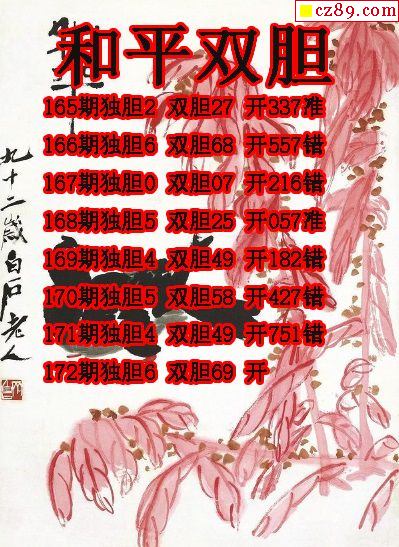 cz89.com
和平双胆
165期独胆2 双胆27 开337准
166期独胆6 双胆68 开557错
167期独胆0 双胆07 开216错
168期独胆5 双胆25 开057准
169期独胆4 双胆49 开182错
170期独胆5 双胆58 开427错
171期独胆4 双胆49 开751错
172期独胆6 双胆69 开
九十二岁白石老人